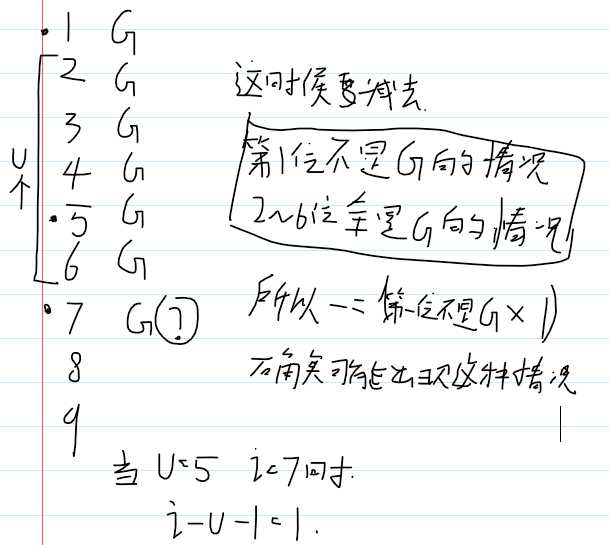 1 G
2 G
3 G
4 G
5 G
6 G
7 G(?)
8
9
U个
这时候要减去
第1位不是G的情况
2~6位全是G的情况
所以 -= (第一位不是G × 1)
可能出现这种情况
当 U=5 i=7时.
i-U-1=1.